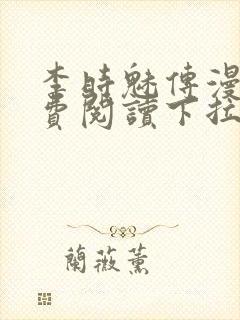 李時魅傳漫
費閱讀下拉
蘭薇薰